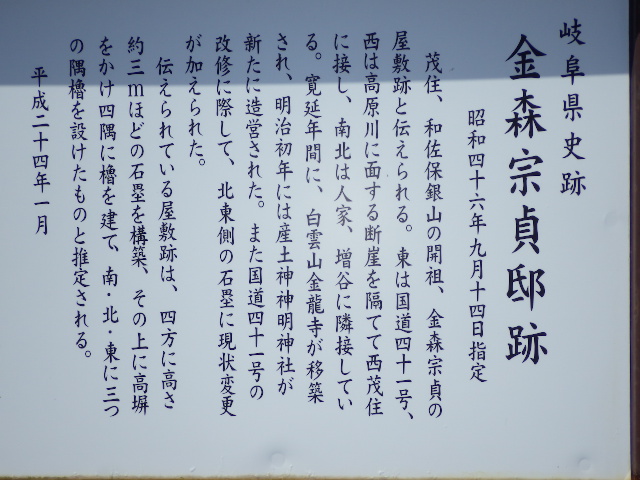 岐阜県史跡
金森宗貞邸跡
昭和四十六年九月十四日指定
茂住、和佐保銀山の開祖、金森宗貞の
屋敷跡と伝えられる。東は国道四十一号、
西は高原川に面する断崖を隔てて西茂住
に接し、南北は人家、増谷に隣接してい
る。寛延年間に、白雲山金龍寺が移築
され、明治初年には産土神神明神社が
新たに造営された。また国道四十一号の
改修に際して、北東側の石塁に現状変更
が加えられた。
伝えられている屋敷跡は、四方に高さ
約三mほどの石塁を構築、その上に高塀
をかけ四隅に櫓を建て、南・北・東に三つ
の隅櫓を設けたものと推定される。
平成二十四年一月